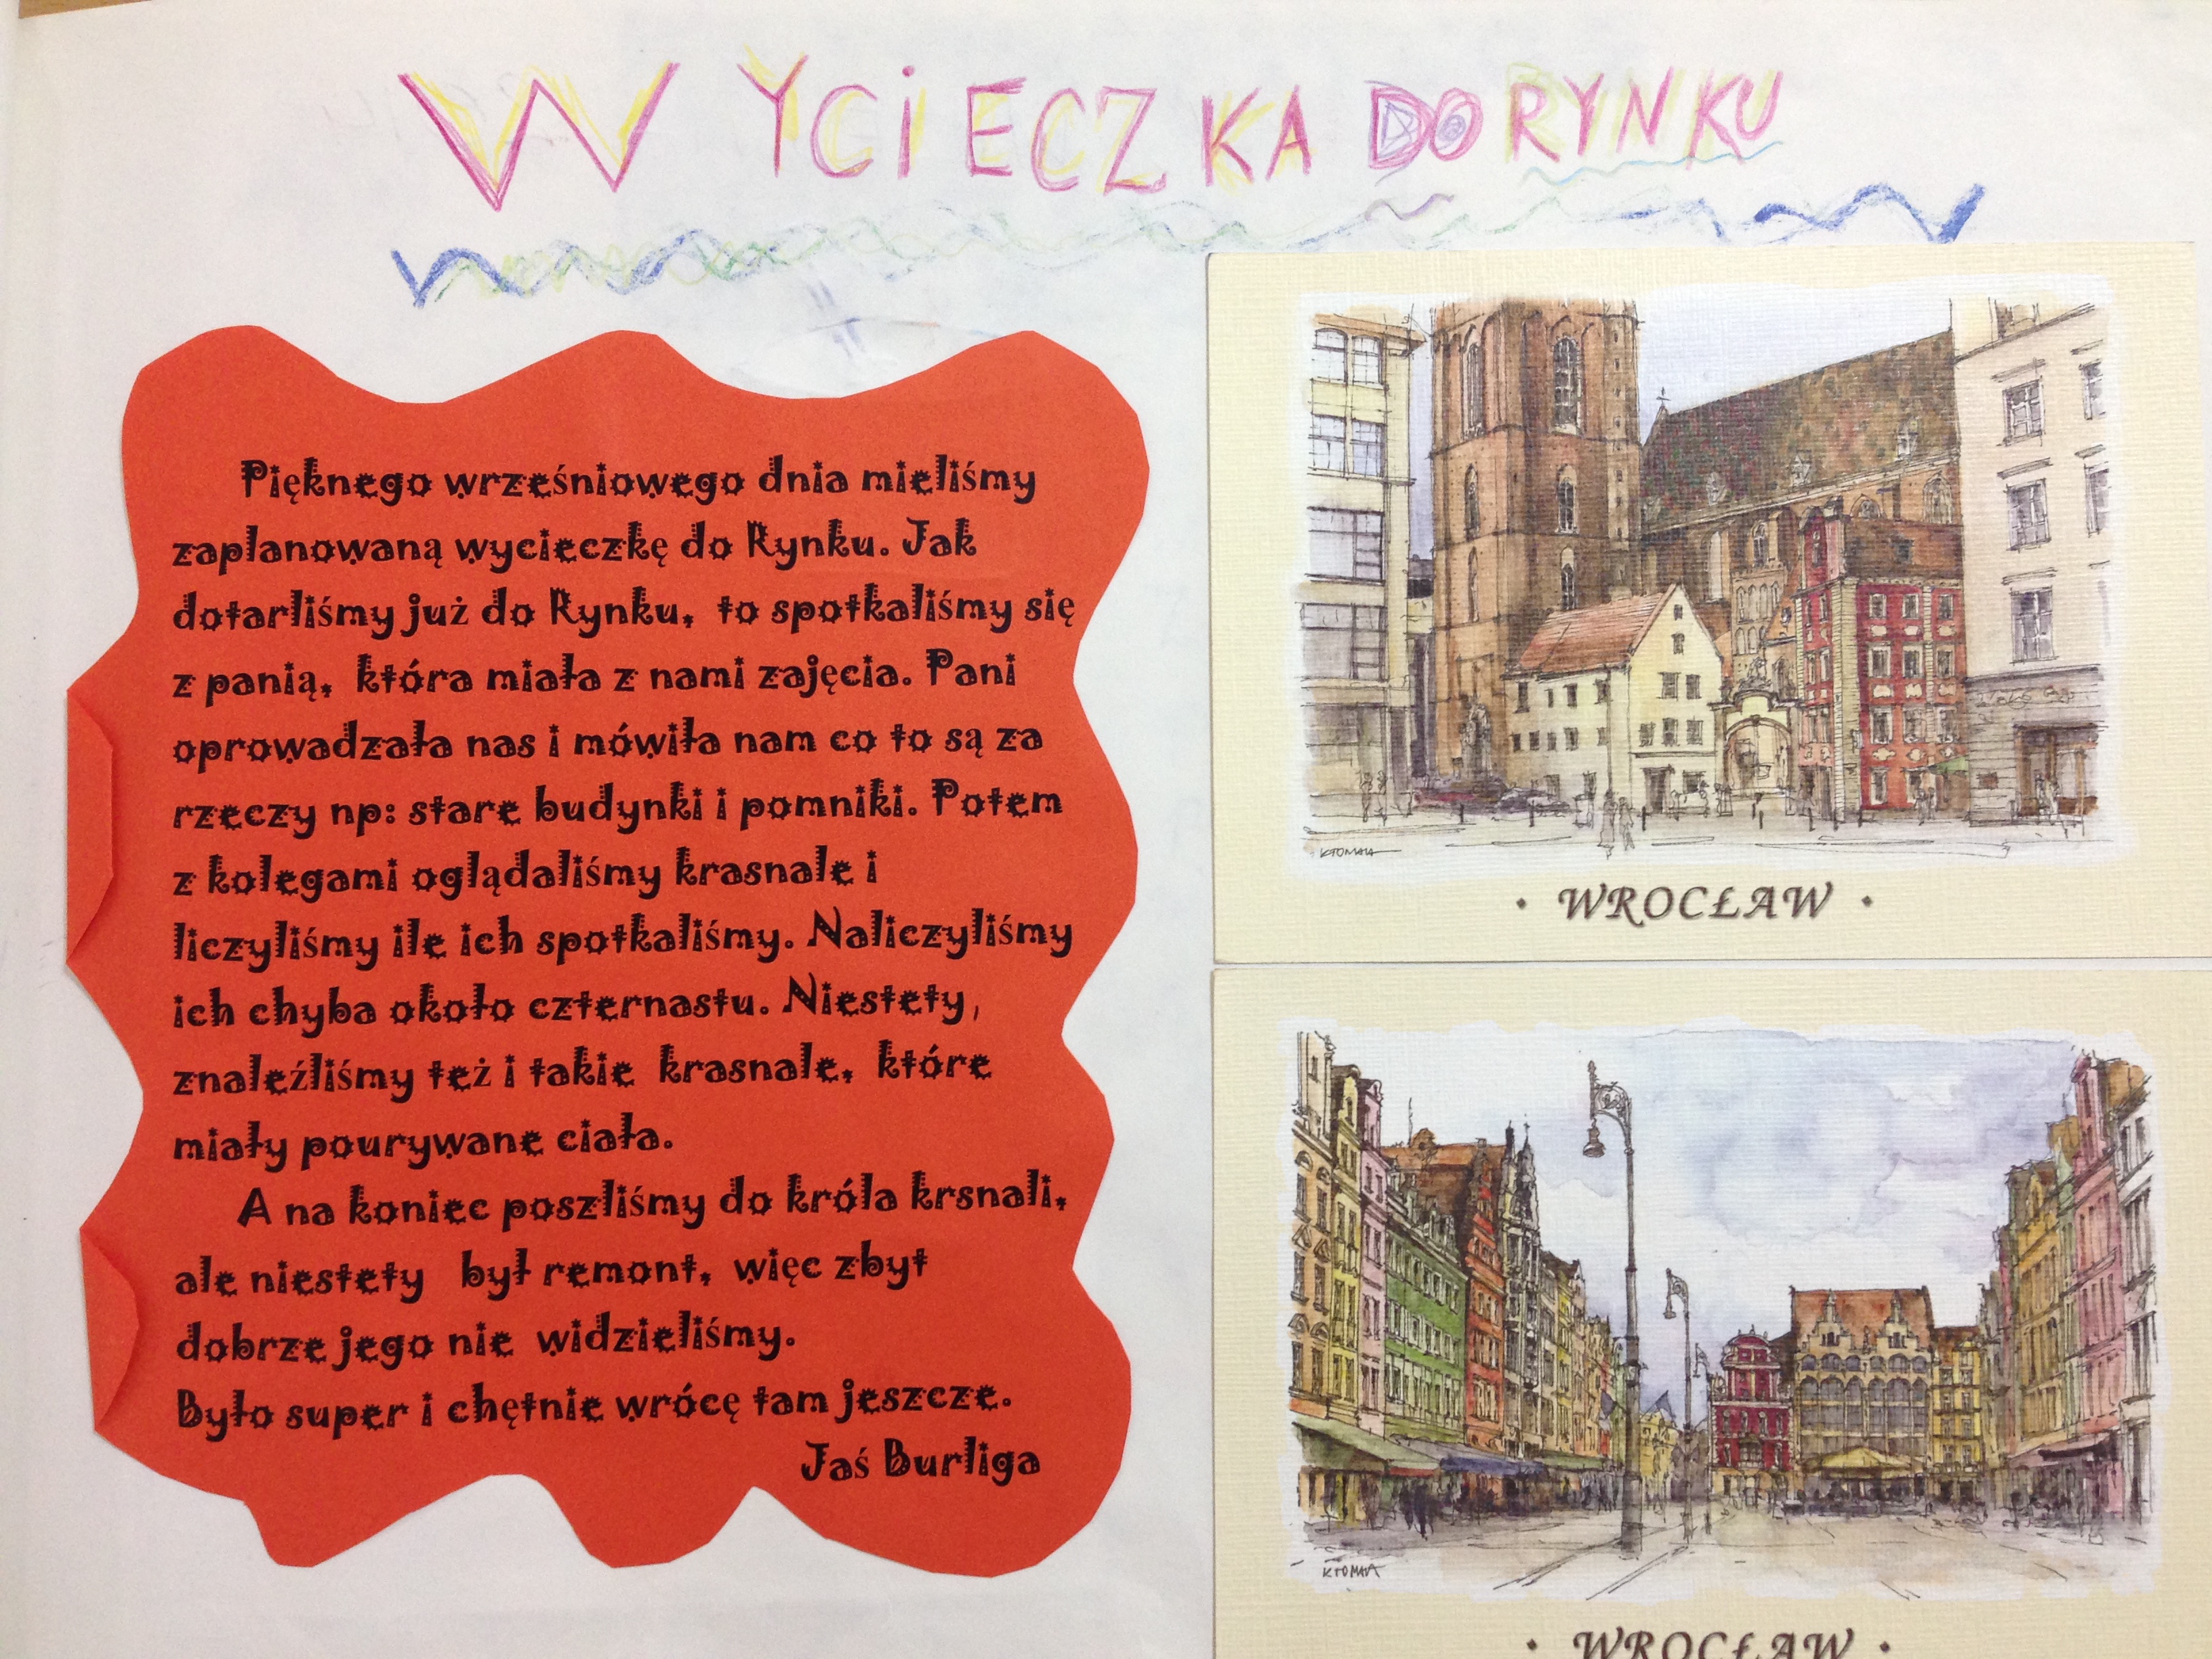 WYCIECZKA DO RYNKU
Pięknego wrześniowego dnia mieliśmy
zaplanowaną wycieczkę do Rynku. Jak
dotarliśmy już do Rynku, to spotkaliśmy się
z panią, która miała z nami zajęcia. Pani
oprowadzała nas i mówiła nam co to są za
rzeczy np: stare budynki i pomniki. Potem
z kolegami oglądaliśmy krasnale i
liczyliśmy ile ich spotkaliśmy. Naliczyliśmy
ich chyba około czternastu. Niestety,
znaleźliśmy też i takie krasnale, które
miały pourywane ciała.
A na koniec poszliśmy do króla krsnali,
ale niestety był remont, więc zbyt
dobrze jego nie widzieliśmy.
Było super i chętnie wrócę tam jeszcze.
Jaś Burliga
· WROCŁAW ·
· WROCŁAW ·